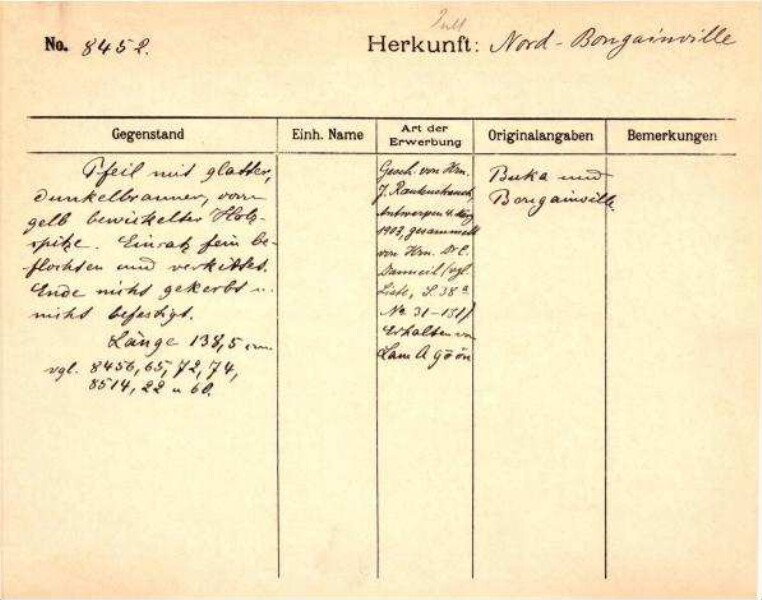 No. 8452.
Herkunft: Nord-Bougainville
Gegenstand
Einh. Name
Art der
Erwerbung
Originalangaben
Bemerkungen
Pfeil mit glatter,
dunkelbrauner, vorn
gelb bewickelter Holz-
spitze. Einsatz fein be-
flochten und verkittet.
Ende nicht gekerbt u.
nicht befestigt.
Länge 138,5 cm
vgl. 8456, 65, 72, 74,
8514, 22 u 60.
Gesch. von Hrn.
J. Rautenstrauch,
Antwerpen 4. März
1903, gesammelt
von Hrn. Dr C.
Danneil (vgl.
Liste, S. 38a
No 31-151)
Erhalten von
Lam A göön
Buka und
Bougainville.